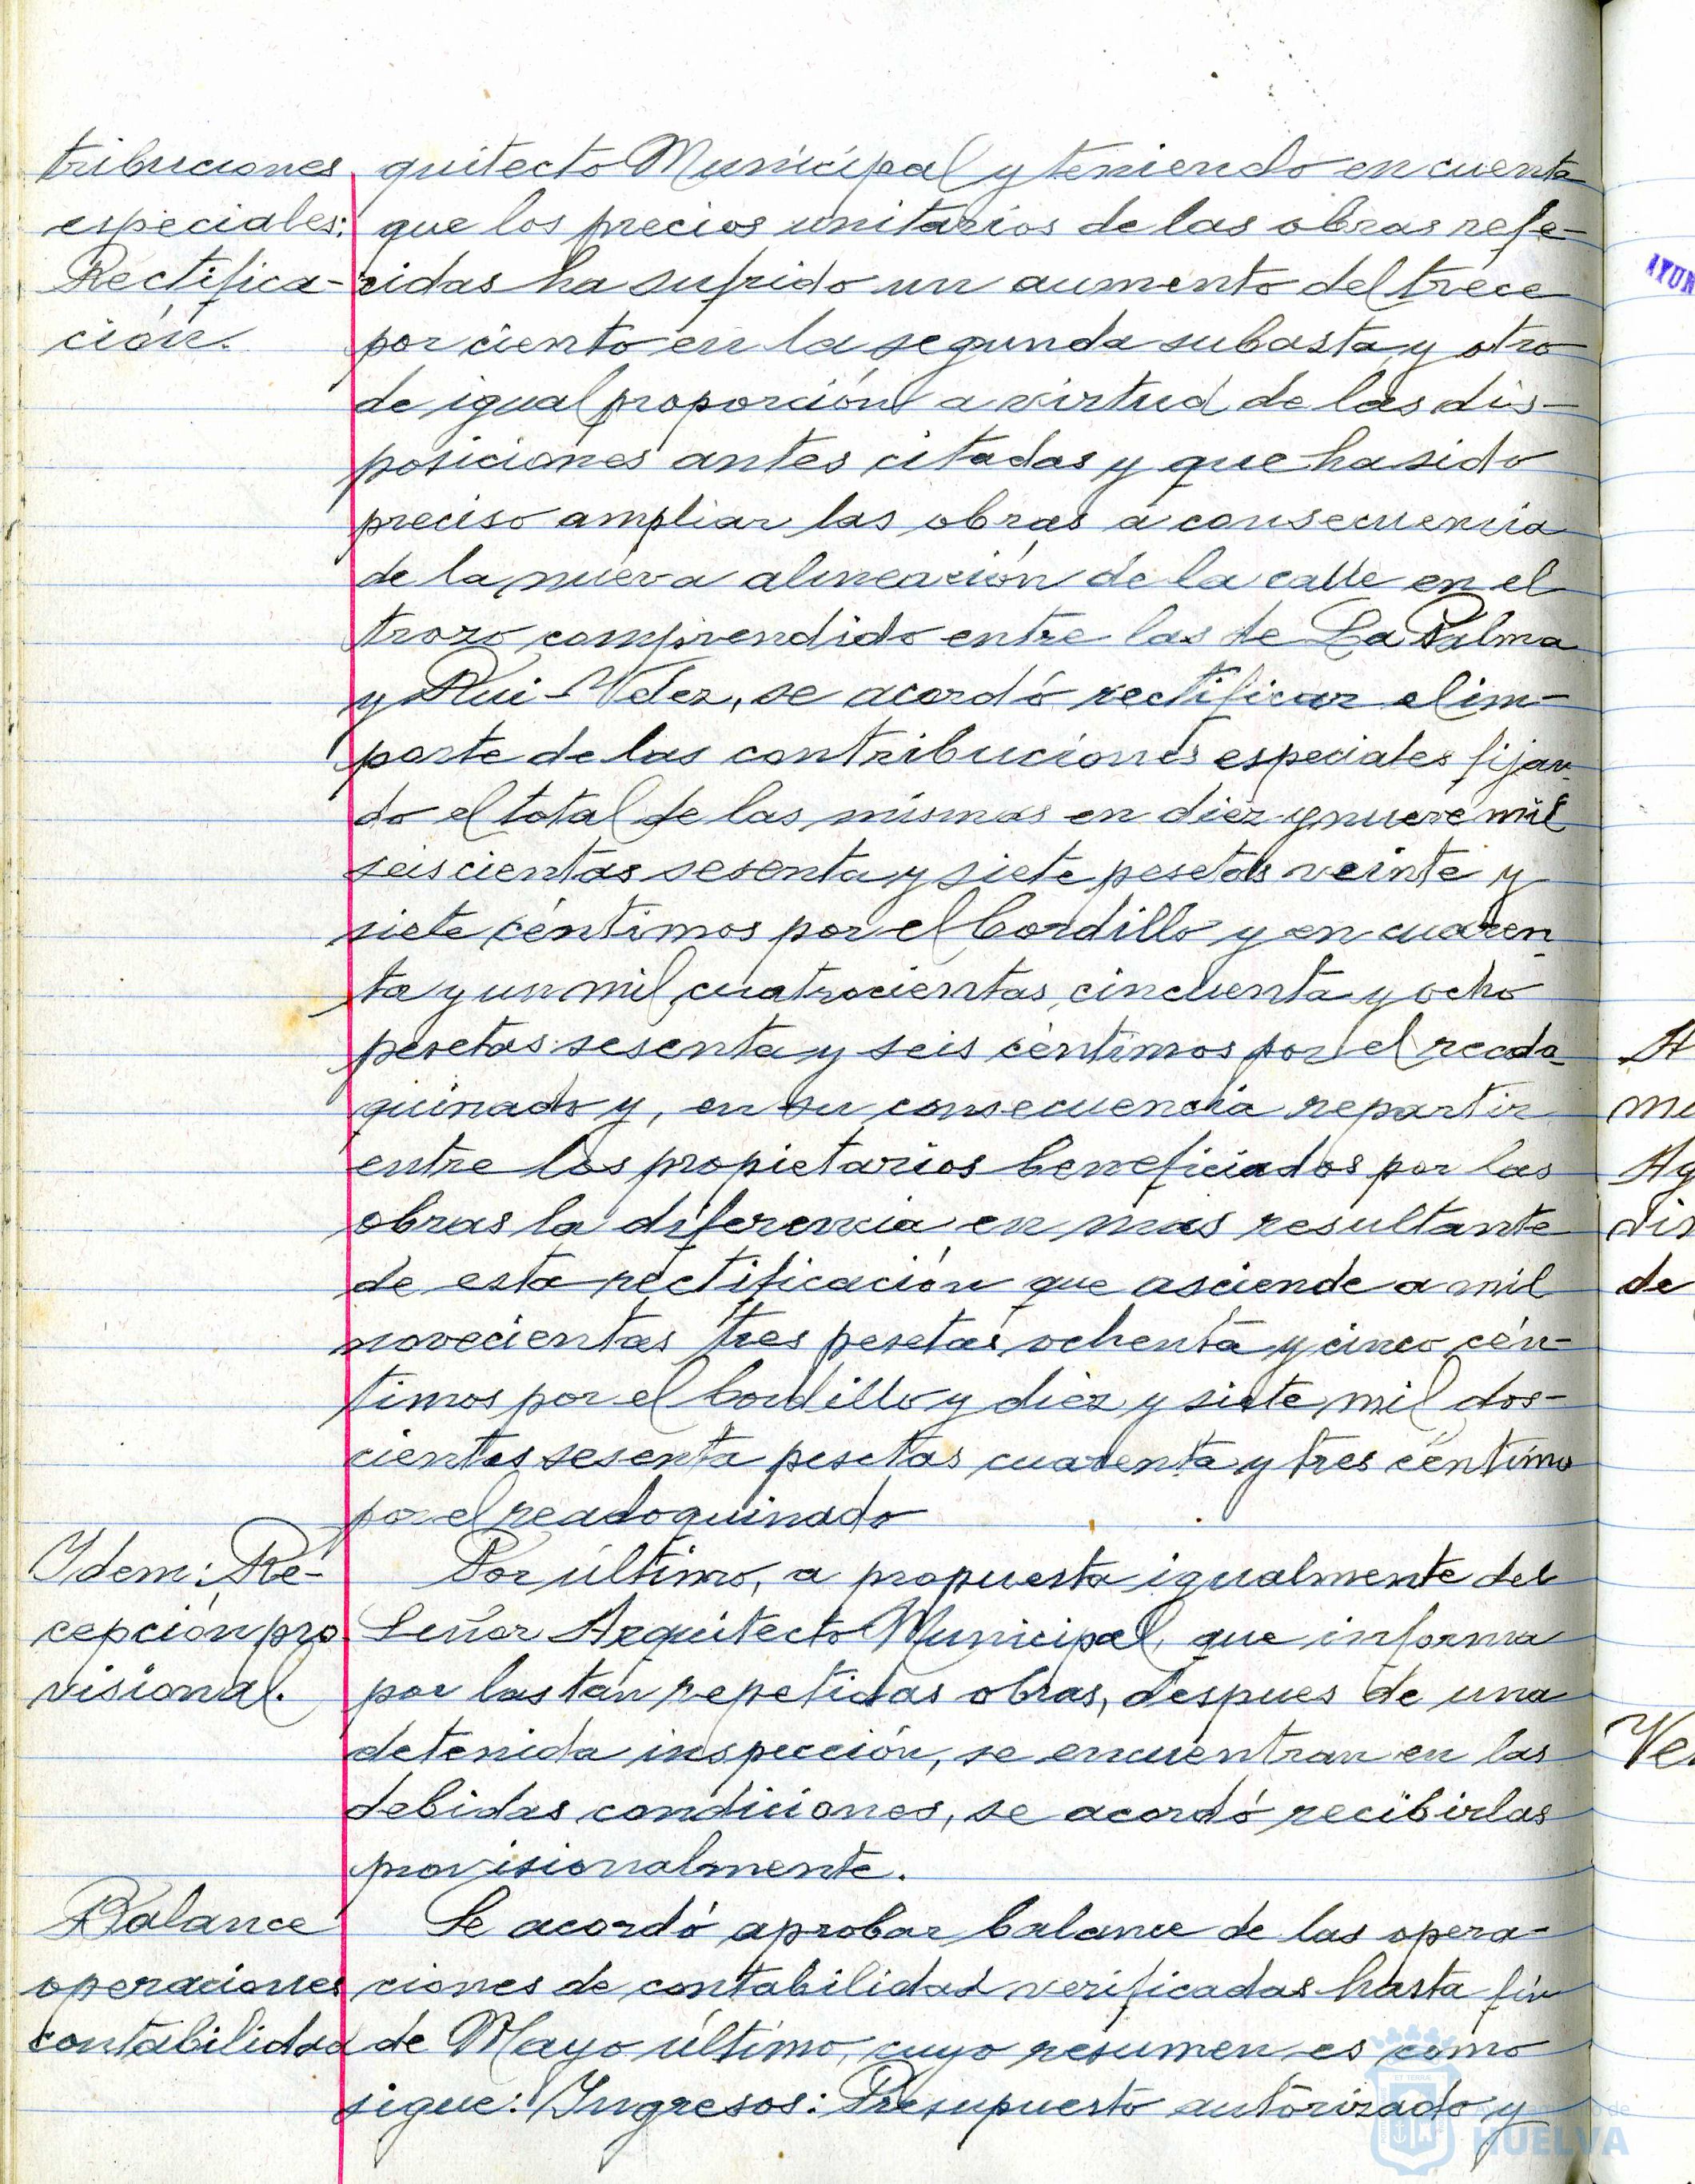 tribuciones
especiales:
Rectifica-
ción.
quitecto Municipal y teniendo en cuenta
que los precios unitarios de las obras refe-
ridas ha sufrido un aumento del trece
por ciento en la segunda subasta y otro
de igual proporción a virtud de las dis-
posiciones antes citadas y que ha sido
preciso ampliar las obras a consecuencia
de la nueva alineación de la calle en el
trozo comprendido entre las de La Palma
y Rui-Velez, se acordó rectificar el im-
porte de las contribuciones especiales fijan-
do el total de las mismas en diez y nueve mil
seiscientas sesenta y siete pesetas veinte y
siete céntimos por el bordillo y en cuaren-
ta y un mil cuatrocientas cincuenta y ocho
pesetas sesenta y seis céntimos por el reado-
quinado y, en su consecuencia repartir
entre los propietarios beneficiados por las
obras la diferencia en mas resultante
de esta rectificación que asciende a mil
novecientas tres pesetas ochenta y cinco cén-
timos por el bordillo y diez y siete mil dos-
cientas sesenta pesetas cuarenta y tres céntimos
por el readoquinado
Idem: Re-
cepción pro
visional.
Por último, a propuesta igualmente del
Señor Arquitecto Municipal, que informa
por las tan repetidas obras, despues de una
detenida inspección, se encuentran en las
debidas condiciones, se acordó recibirlas
provisionalmente.
Balance
operaciones
contabilidad
Se acordó aprobar balance de las opera-
ciones de contabilidad verificadas hasta fin
de Mayo último, cuyo resumen es como
sigue: Ingresos: Presupuesto autorizado y
AYUN
A
mu
Ag
dis
de
Ve
HUELVA